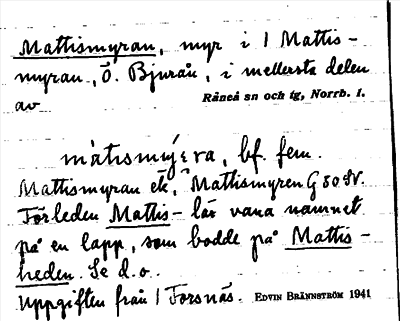 Mattismyran, myr i 1 Mattis-
myran, Ö. Bjurån, i mellersta delen
av Råneå sn och tg, Norrb. l.
màtɩsmý̀ra, bf. fem.
Mattismyran ek, Mattismyren G 80 SV.
Förleden Mattis- lär vara namnet
på en lapp, som bodde på Mattis-
heden. Se d.o.
Uppgiften från 1 Forsnäs. EDVIN BRÄNNSTRÖM 1941